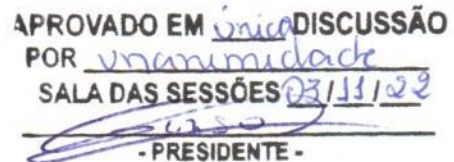 APROVADO EM única DISCUSSÃO
POR unanimidade
SALA DAS SESSÕES 03/11/22
- PRESIDENTE -